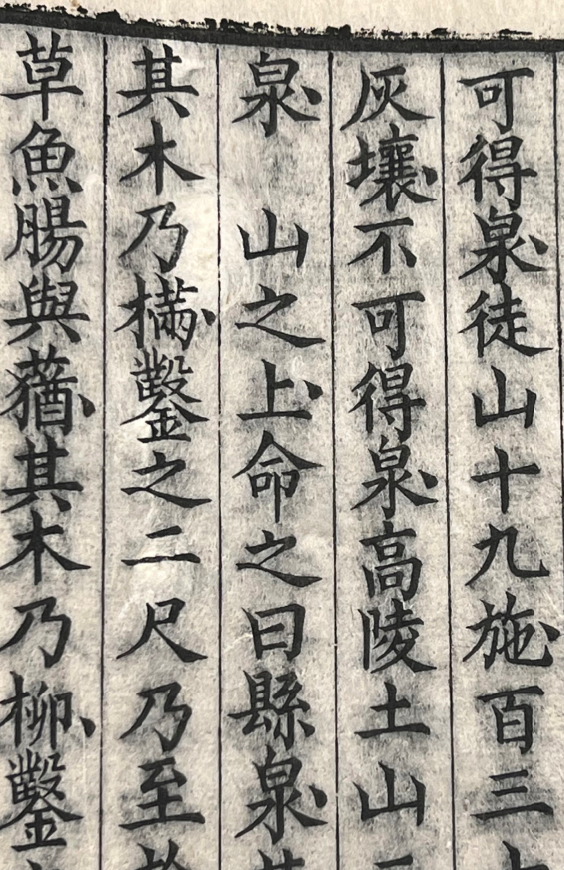 可得泉徒山十九施百三
灰壤不可得泉高陵土山
泉　山之上命之曰縣泉
其木乃樠鑿之二尺乃至
草魚腸與蕕其木乃柳鑿